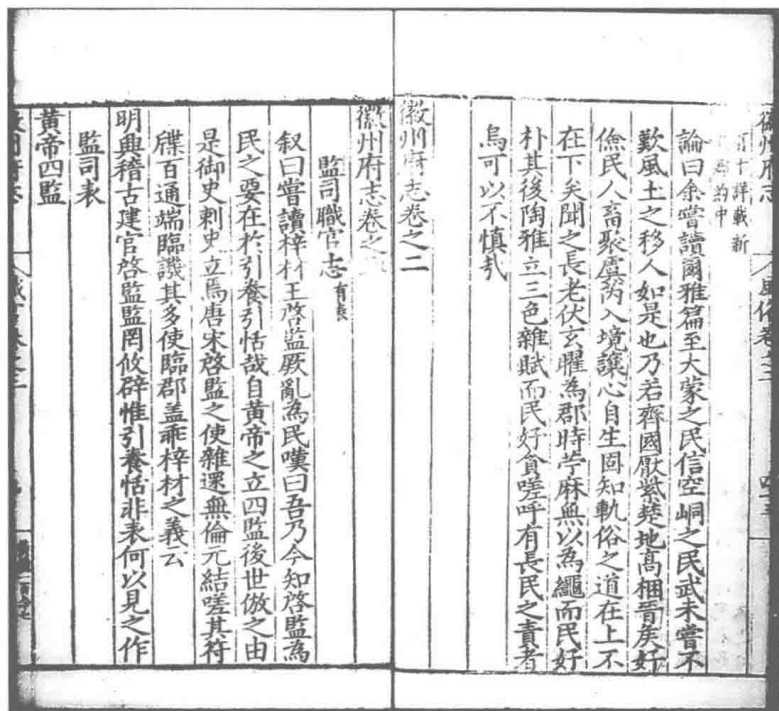 徽州府志
風俗卷之二
詳載新
約中
論曰余嘗讀爾雅篇至大蒙之民信空峒之民武未嘗不
歎風土之移人如是也乃若齊國厭紫楚地高梱晉矦好
儉民人畜聚虞芮入境讓心自生固知軌俗之道在上不
在下矣聞之長老伏玄曜為郡時苧麻無以為繩而民好
朴其後陶雅立三色雜賦而民好貪嗟呼有長民之責者
烏可以不慎㢤
徽州府志卷之二
徽州府志卷之
監司職官志有表
叙曰嘗讀梓材王啓監厥亂為民嘆曰吾乃今知啓監為
民之要在於引養引恬哉自黃帝之立四監後世倣之由
是御史刺史立焉唐宋啓監之使雜遝無倫元結嗟其符
牒百通端臨譏其多使臨郡盖乖梓材之義云
明興稽古建官啓監監罔攸辟惟引養恬非表何以見之作
監司表
黃帝四監